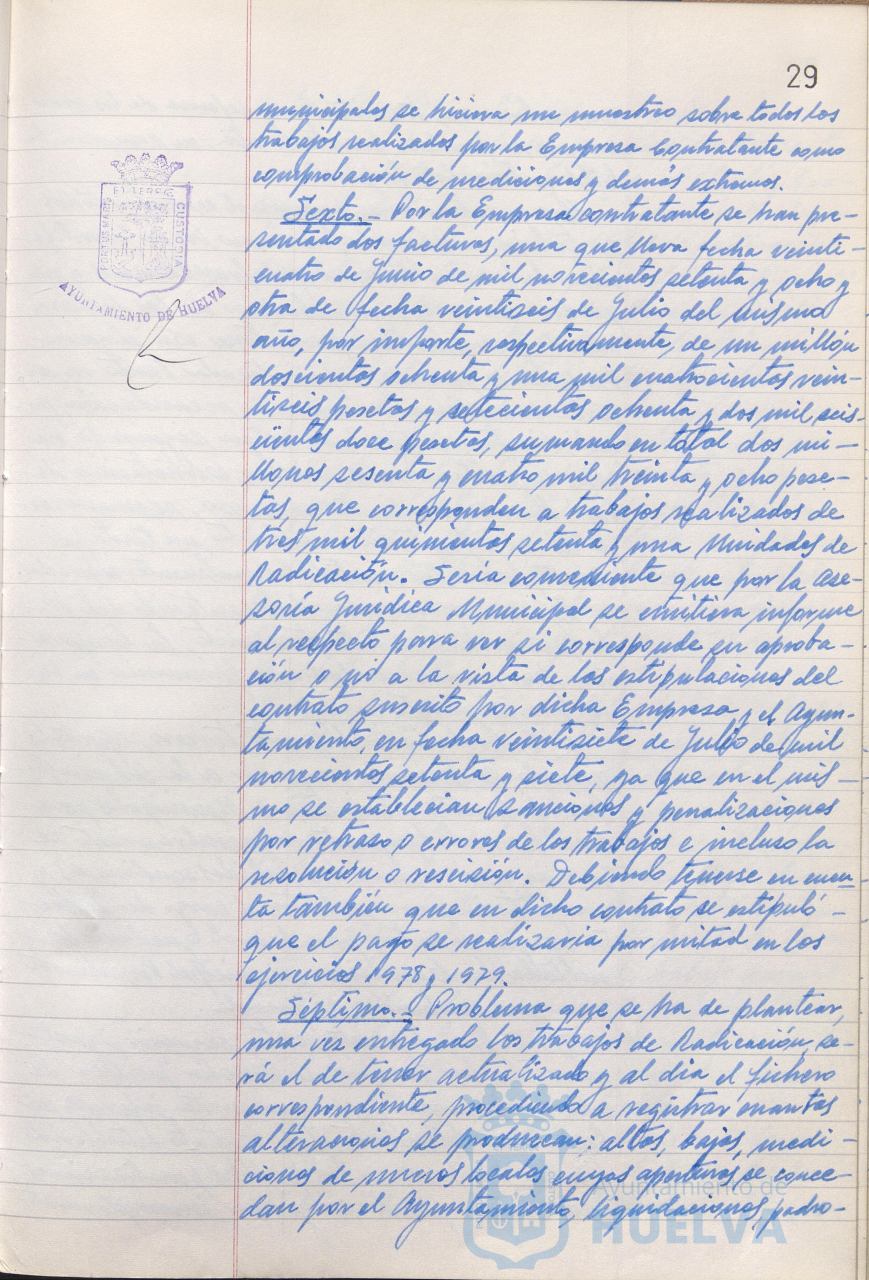 29
municipales se hiciera un muestreo sobre todos los
trabajos realizados por la Empresa Contratante como
comprobación de mediciones y demás extremos.
Sexto.- Por la Empresa contratante se han pre-
sentado dos facturas, una que lleva fecha veinti-
cuatro de Junio de mil novecientos setenta y ocho y
otra de fecha veintiseis de Julio del mismo
año, por importe, respectivamente, de un millón
doscientas ochenta y una mil cuatrocientas vein-
tiseis pesetas y setecientas ochenta y dos mil seis-
cientas doce pesetas, sumando en total dos mi-
llones sesenta y cuatro mil treinta y ocho pese-
tas, que corresponden a trabajos realizados de
tres mil quinientos setenta y una Unidades de
Radicación. Sería conveniente que por la Ase-
soría Jurídica Municipal se emitiera informe
al respecto para ver si corresponde su aproba-
ción o no a la vista de las estipulaciones del
contrato suscrito por dicha Empresa y el Ayun-
tamiento, en fecha veintisiete de Julio de mil
novecientos setenta y siete, ya que en el mis-
mo se establecian sanciones y penalizaciones
por retraso o errores de los trabajos e incluso la
resolución o rescisión. Debiendo tenerse en cuen-
ta también que en dicho contrato se estipuló -
que el pago se realizaria por mitad en los
ejercicios 1978 y 1979.
Séptimo.- Problema que se ha de plantear,
una vez entregado los trabajos de Radicación, se-
rá el de tener actualizado y al dia el fichero
correspondiente, procediendo a registrar cuantas
alteraciones se produzcan; altas, bajas, medi-
ciones de nuevos locales cuyas aperturas se conce-
dan por el Ayuntamiento, liquidaciones, padro-
PORTUS MARIS ET TERRE CUSTODIA
AYUNTAMIENTO DE HUELVA
Ayuntamiento de
HUELVA